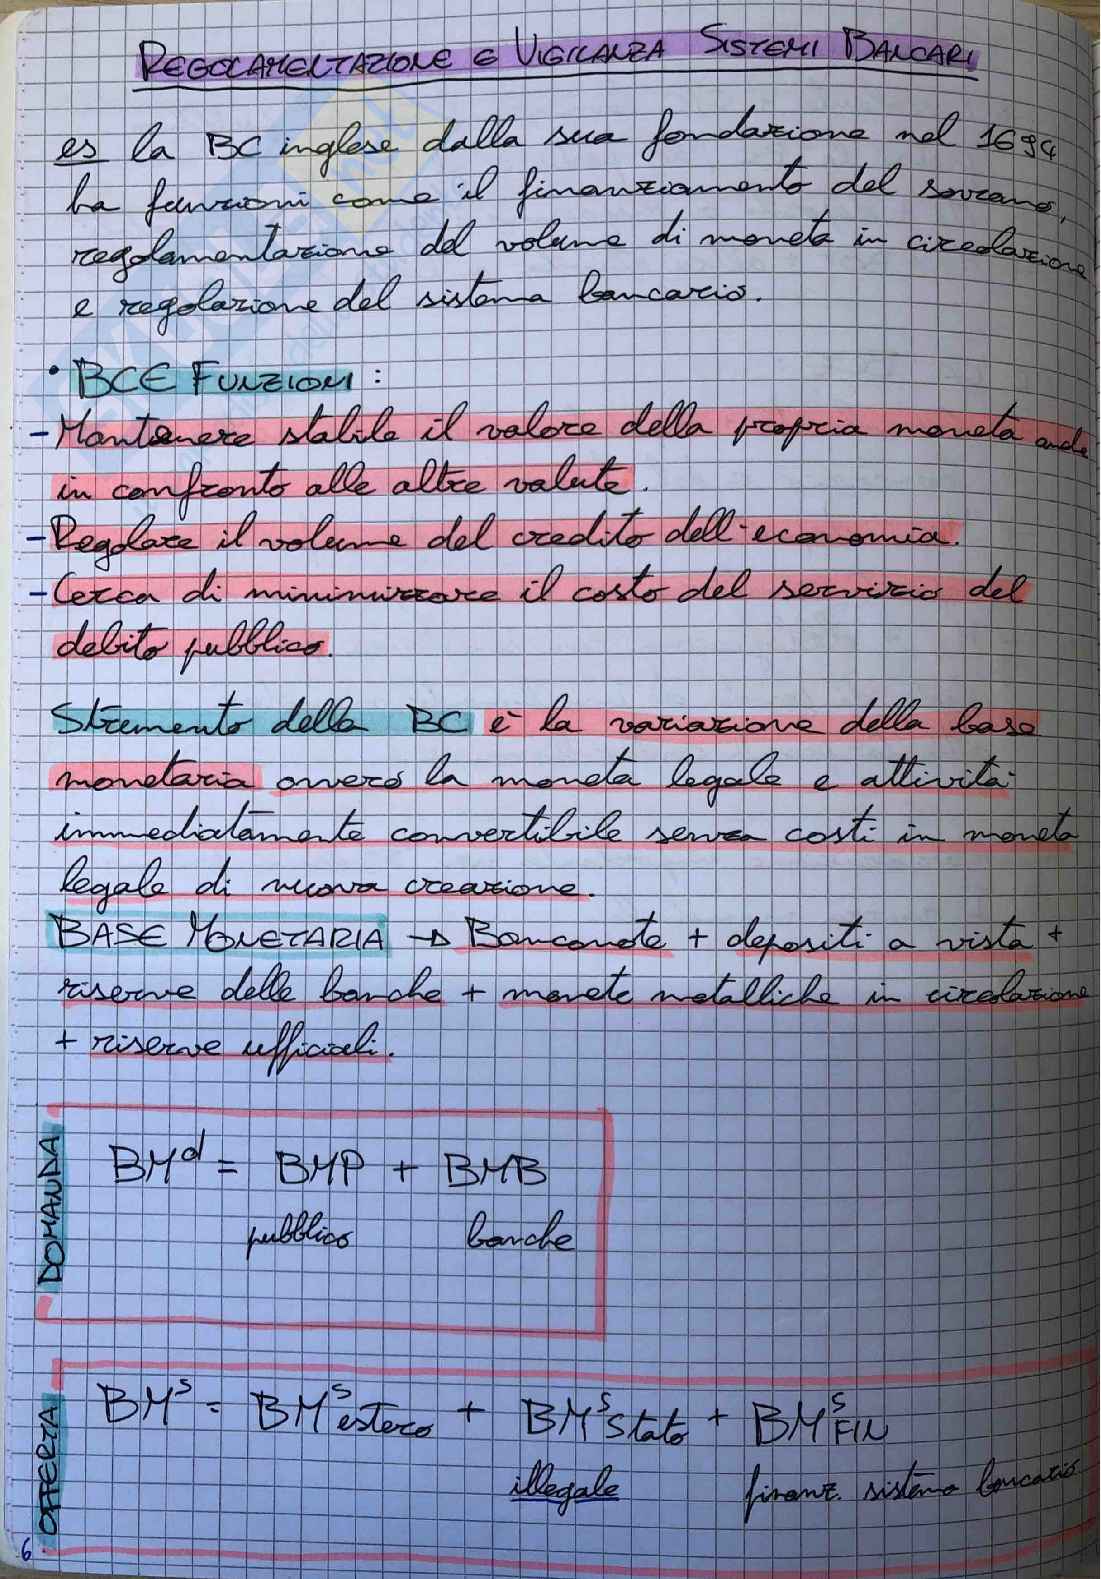 REGOLAMENTAZIONE E VIGILANZA SISTEMI BANCARI
es la BC inglese dalla sua fondazione nel 1694
ha funzioni come il finanziamento del sovrano,
regolamentazione del volume di moneta in circolazione
e regolazione del sistema bancario.
• BCE FUNZIONI :
- Mantenere stabile il valore della propria moneta anche
in confronto alle altre valute.
- Regolare il volume del credito dell'economia.
- Cerca di minimizzare il costo del servizio del
debito pubblico.
Strumento della BC è la variazione della base
monetaria ovvero la moneta legale e attività
immediatamente convertibile senza costi in moneta
legale di nuova creazione.
BASE MONETARIA → Banconote + depositi a vista +
riserve delle banche + monete metalliche in circolazione
+ riserve ufficiali.
DOMANDA
BMᵈ = BMP + BMB
pubblico banche
OFFERTA
BMˢ = BMˢ estero + BMˢ Stato + BMˢ FIN
illegale finanz. sistema bancario
6